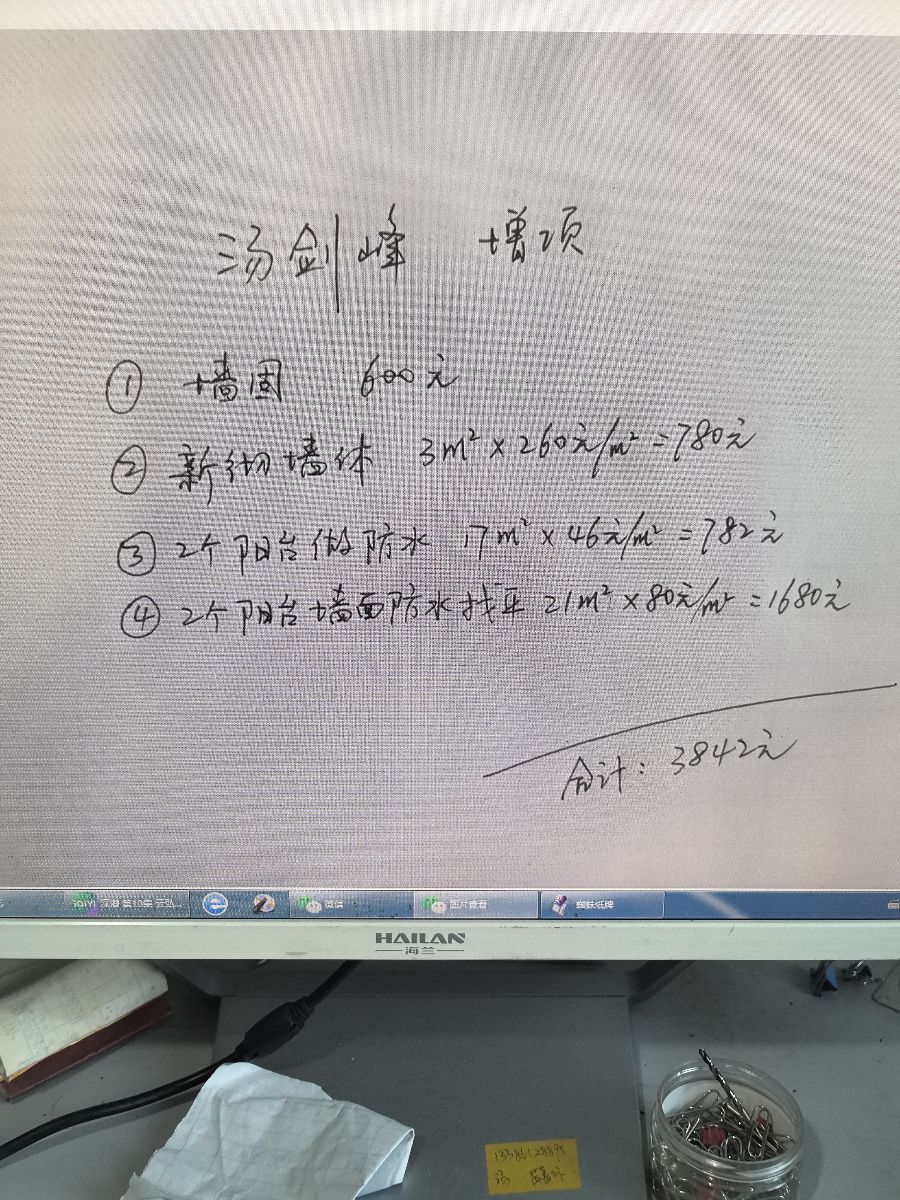 汤剑峰 增项
① 墙固 600元
② 新砌墙体 3m²×260元/m²=780元
③ 2个阳台做防水 17m²×46元/m²=782元
④ 2个阳台墙面防水找平 21m²×80元/m²=1680元
合计：3842元
微信
图片查看
蜘蛛纸牌
HAILAN
海兰